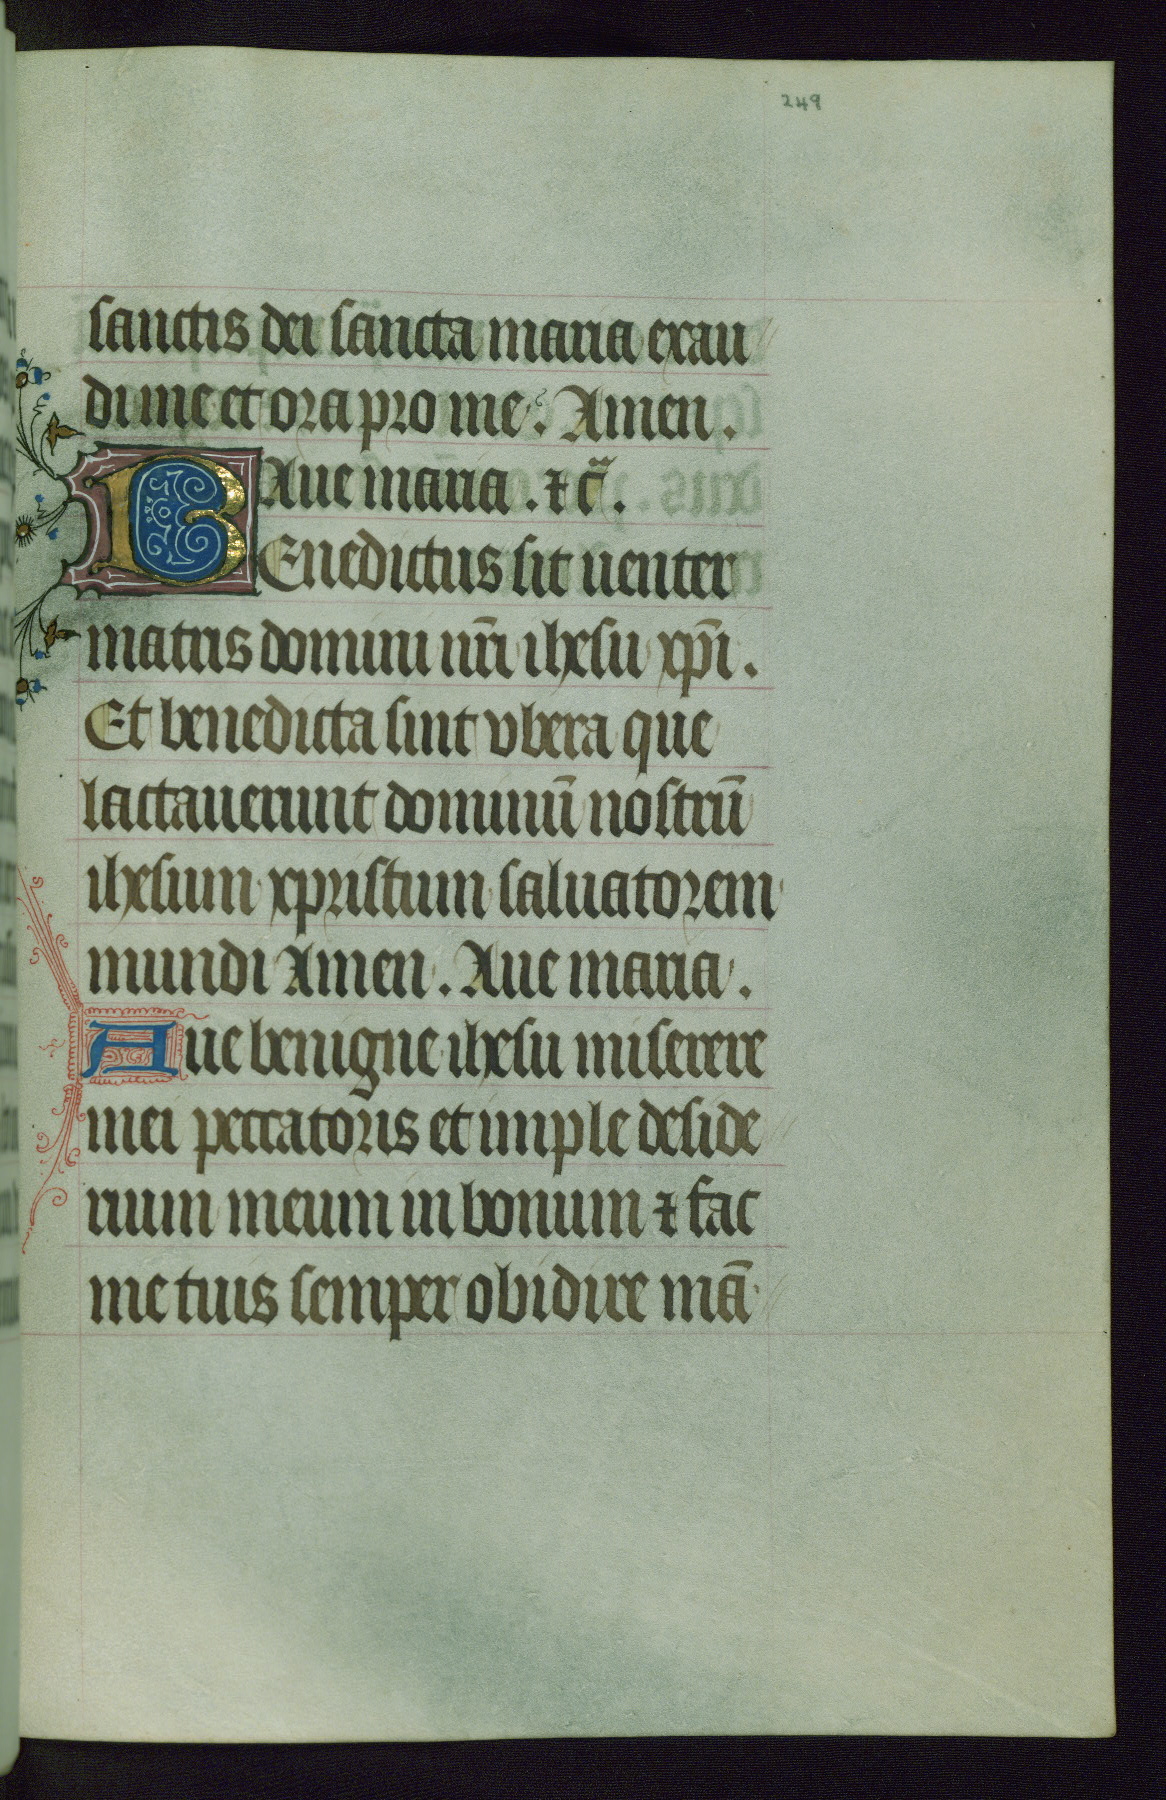 249
sanctis dei sancta maria exau
di me et ora pro me. Amen.
Aue maria. ⁊ cͣ.
BEnedictus sit uenter
matris domini nr̄i ihesu xp̄i.
Et benedicta sint vbera que
lactauerunt dominū nostrū
ihesum xpristum saluatorem
mundi Amen. Aue maria.
Aue benigne ihesu miserere
mei peccatoris et imple deside
rium meum in bonum ⁊ fac
me tuis semper obidire mā